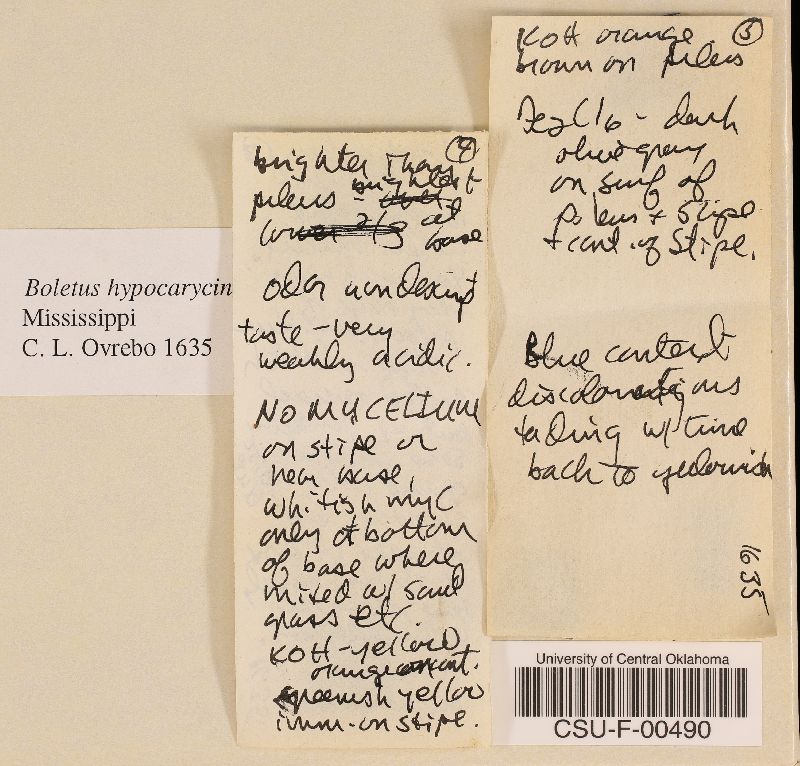 Boletus hypocarycin
Mississippi
C. L. Ovrebo 1635
4
brighter than
pileus - brightest
lower 2/3 at
base
odor nondescript
taste - very
weakly acidic.
NO MYCELIUM
on stipe or
near base,
whitish myc
only at bottom
of base where
mixed w/ sand
grass etc.
KOH - yellow
orange on cont.
greenish yellow
imm. on stipe.
5
KOH orange
brown on pileus
Fe2Cl6 - dark
olive gray
on surf of
pileus + stipe
+ cont. of stipe.
Blue context
discolorations
fading w/ time
back to yellowish
1635
University of Central Oklahoma
CSU-F-00490